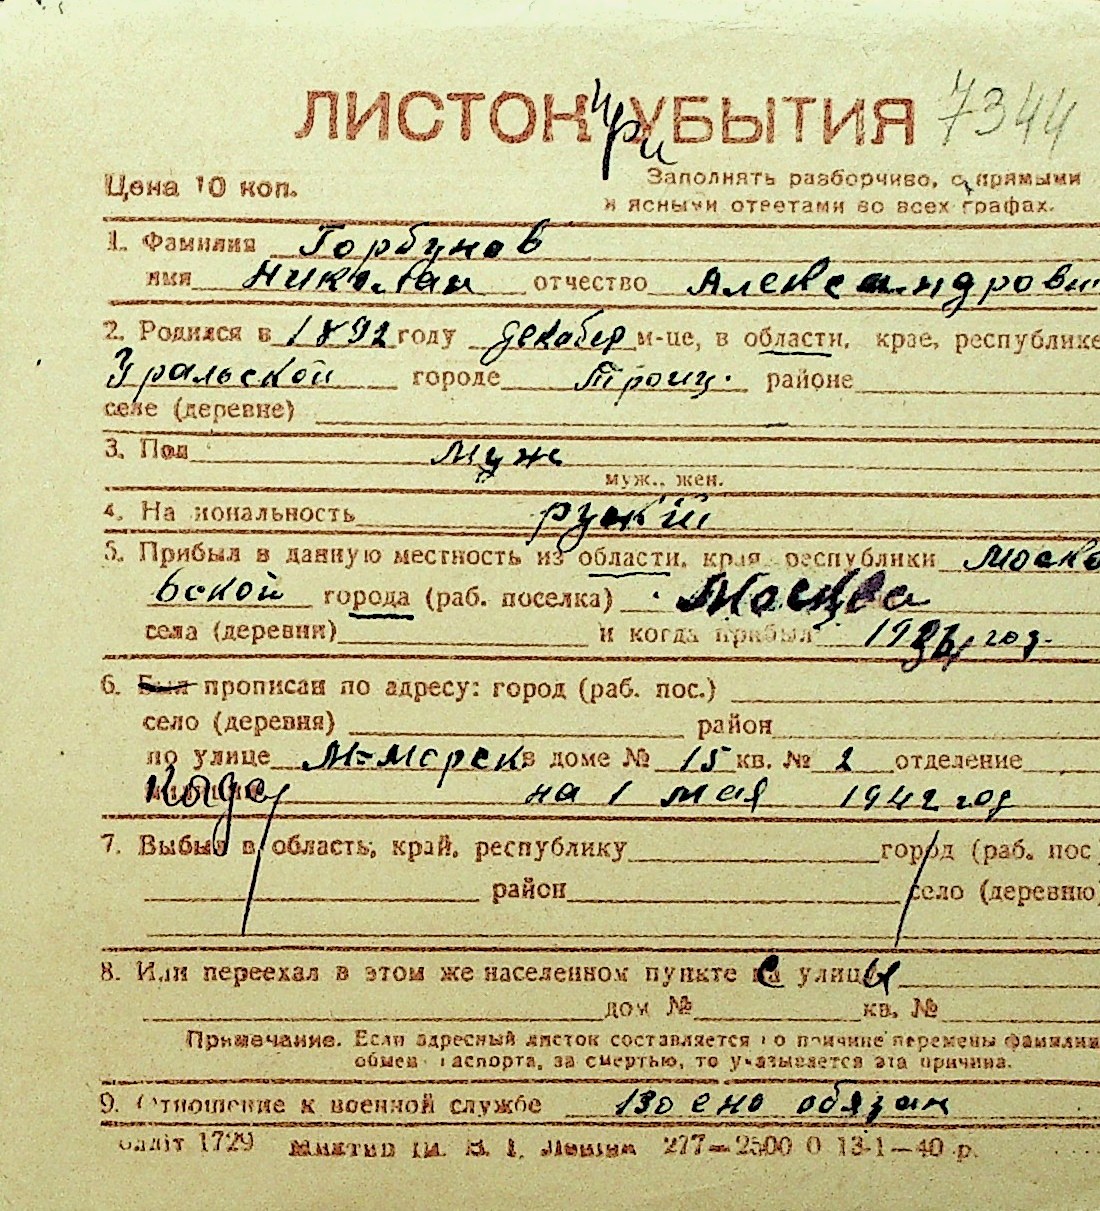 ЛИСТОК при УБЫТИЯ 7344
Цена 10 коп.
Заполнять разборчиво, с прямыми
и ясными ответами во всех графах.
1. Фамилия Горбунов
имя Николай отчество Александрович
2. Родился в 1892 году декабер м-це, в области, крае, республике
Уральской городе Троиц. районе
селе (деревне)
3. Пол муж
муж., жен.
4. Национальность руский
5. Прибыл в данную местность из области, края республики Моско
вской города (раб. поселка) Москва
села (деревни) и когда прибыл 1934 год.
6. Был прописан по адресу: город (раб. пос.)
село (деревня) район
по улице М-Морск в доме № 15 кв. № 2 отделение
на 1 мая 1942 год
7. Выбыл в область, край, республику город (раб. пос
район село (деревню)
8. Или переехал в этом же населенном пункте с улицы
дом № кв. №
Примечание. Если адресный листок составляется по причине перемены фамилии
обмен паспорта, за смертью, то указывается эта причина.
9. Отношение к военной службе воено обязан
1729 В. І. Леніна 277—2500 0 13-1—40 р.